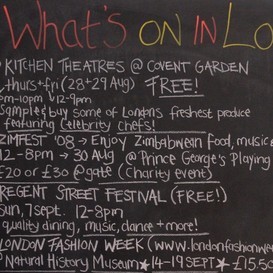 What's ON IN Lo
KITCHEN THEATRES @ COVENT GARDEN
thurs+fri (28+29 Aug) FREE!
pm-10pm 12-9pm
Sample & buy some of Londons freshest produce
featuring Celebrity Chefs!
ZIMFEST '08 → Enjoy Zimbabwean food, music &
12-8pm → 30 Aug @ Prince George's Playing
£20 or £30 @gate (Charity event)
REGENT STREET FESTIVAL (FREE!)
Sun, 7 sept. 12-8pm
quality dining, music, dance + more!
LONDON FASHION WEEK (www.londonfashionwee
@ Natural History Museum ★ 14-19 SEPT ★ £15.50